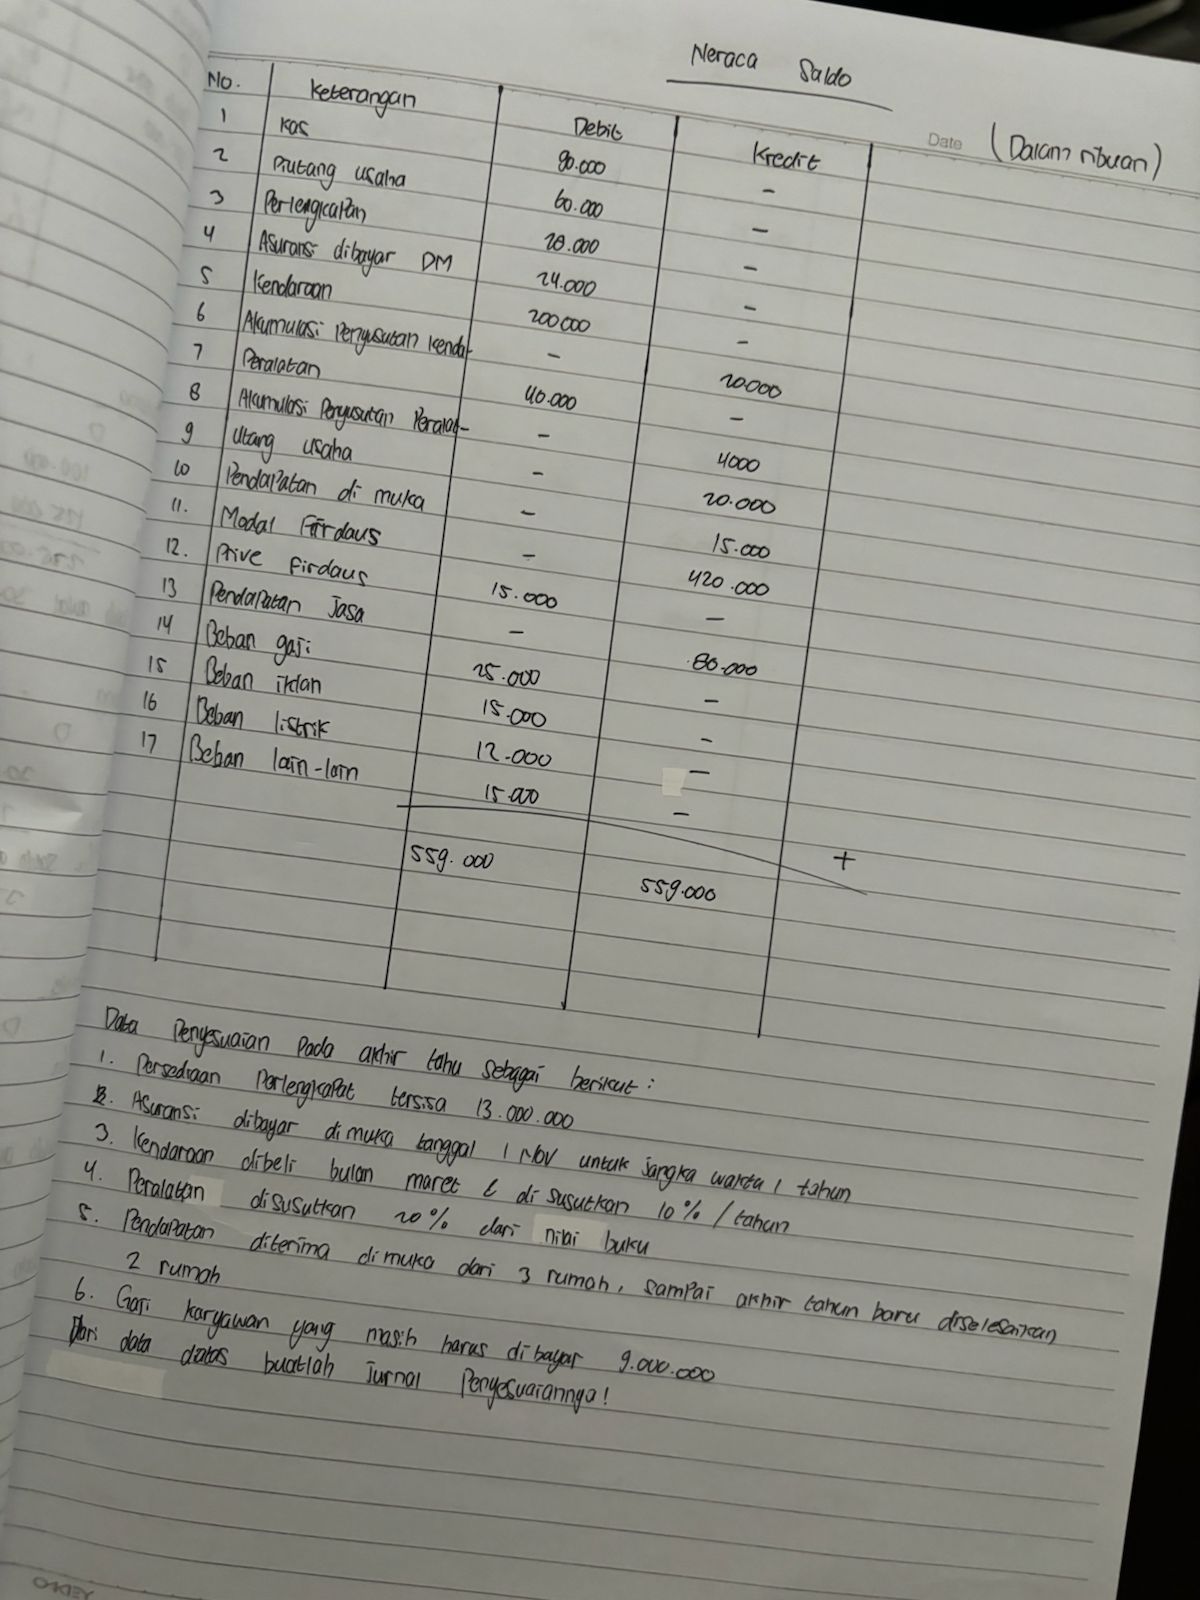 Neraca Saldo
Date (Dalam ribuan)
No. Keterangan Debit Kredit
1 Kas 80.000 -
2 Piutang usaha 60.000 -
3 Perlengkapan 28.000 -
4 Asuransi dibayar DM 24.000 -
5 Kendaraan 200000 -
6 Akumulasi Penyusutan Kenda- - 20000
7 Peralatan 40.000 -
8 Akumulasi Penyusutan Peralat- - 4000
9 Utang usaha - 20.000
10 Pendapatan di muka - 15.000
11. Modal Firdaus - 420.000
12. Prive Firdaus 15.000 -
13 Pendapatan Jasa - 80.000
14 Beban gaji 25.000 -
15 Beban iklan 15.000 -
16 Beban listrik 12.000 -
17 Beban lain-lain 15.000 -
+
559.000 559.000
Data Penyesuaian Pada akhir tahu sebagai berikut:
1. Persediaan Perlengkapat tersisa 13.000.000
2. Asuransi dibayar dimuka tanggal 1 Nov untuk jangka waktu 1 tahun
3. Kendaraan dibeli bulan maret & di susutkan 10% / tahun
4. Peralatan disusutkan 20% dari nilai buku
5. Pendapatan diterima dimuka dari 3 rumah, sampai akhir tahun baru diselesaikan
2 rumah
6. Gaji karyawan yang masih harus dibayar 9.000.000
Dari data diatas buatlah Jurnal Penyesuaiannya!